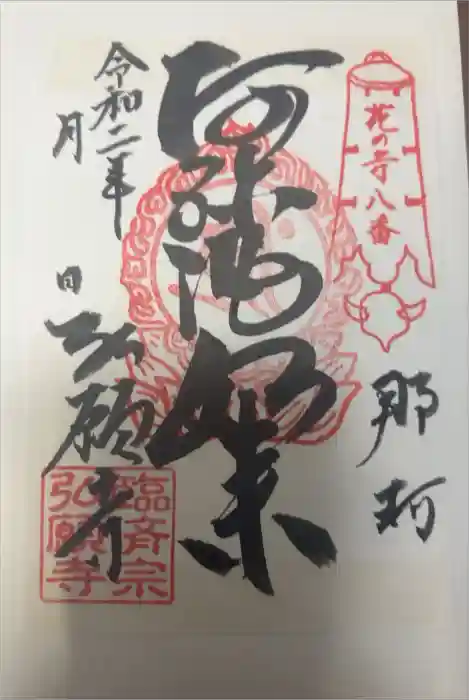 花の寺八番
那珂
阿弥陀如来
令和二年
月
日
弘願寺
臨斉宗
弘願寺